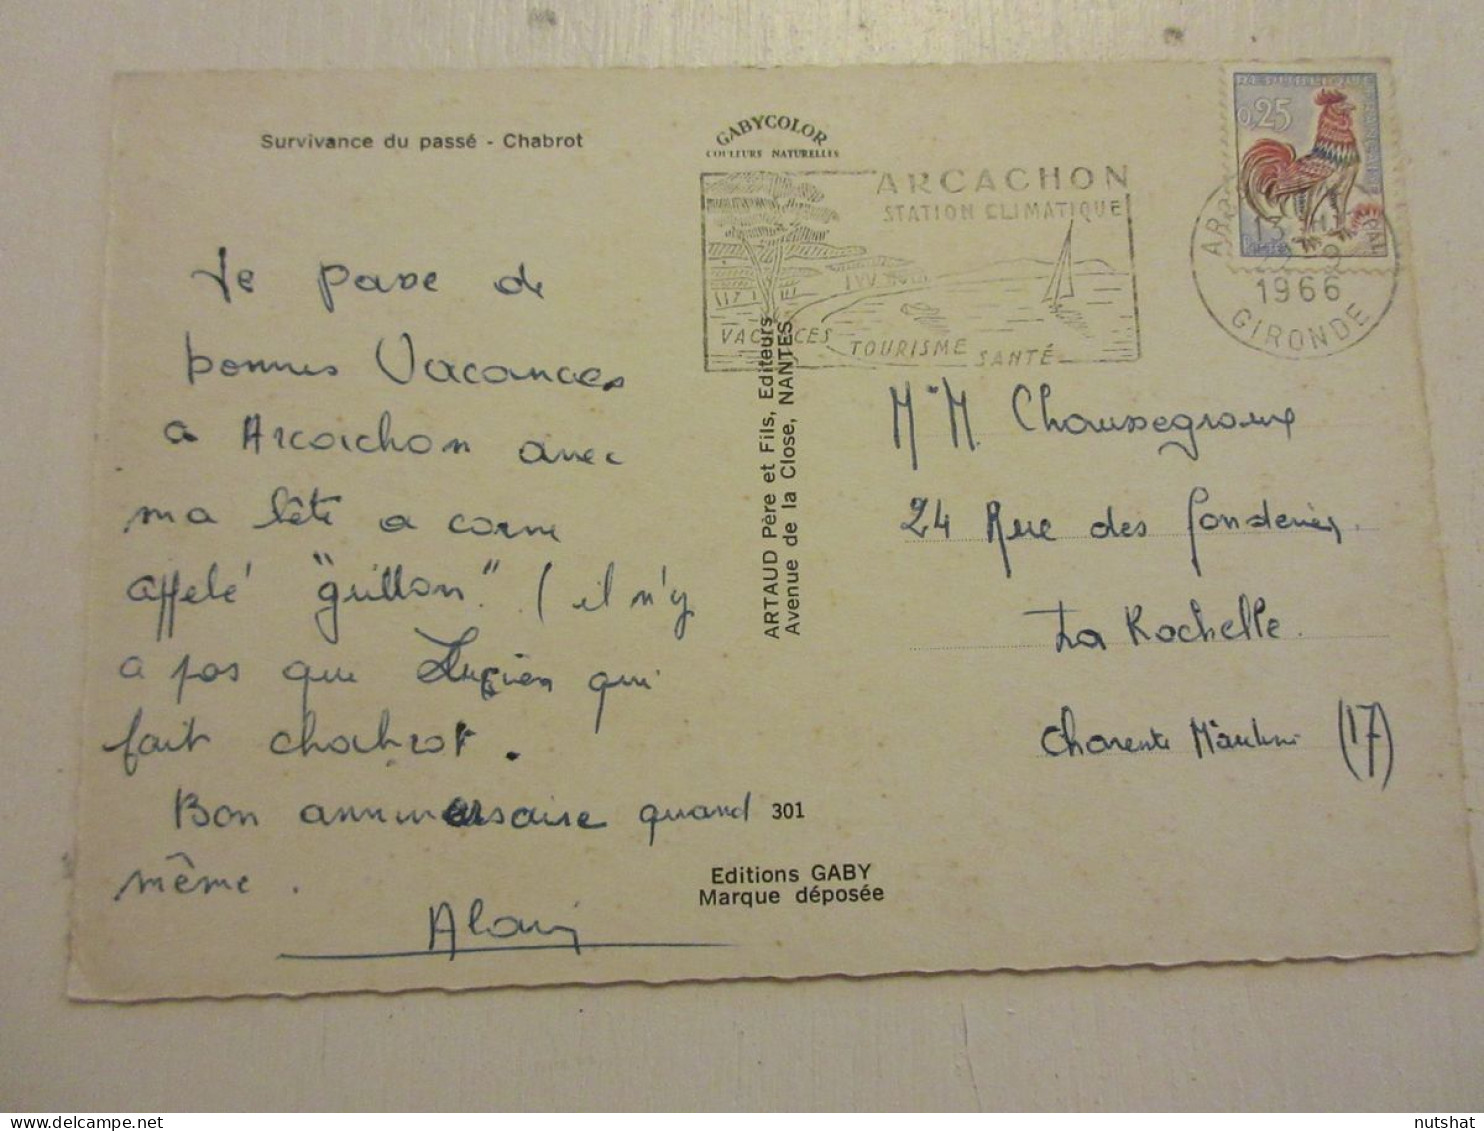 Survivance du passé - Chabrot
GABYCOLOR
COULEURS NATURELLES
ARCACHON
STATION CLIMATIQUE
VACANCES
TOURISME
SANTÉ
0,25
13 H
1966
GIRONDE
Je passe de
bonnes Vacances
a Arcachon avec
ma bête a corne
appelé "grillon" ( il n'y
a pas que Lucien qui
fait chabrot .
Bon anniversaire quand
même .
Alain
ARTAUD Père et Fils, Editeurs
Avenue de la Close, NANTES
301
Editions GABY
Marque déposée
24 Rue des fonderies
La Rochelle
Charente M (17)
nutshat